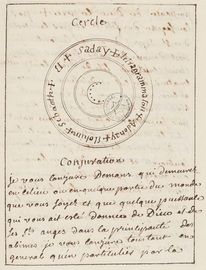 Cercle
+ El + Saday + tetragrammaton + adonay + Elohim +
Conjuration
je vous conjure Demons, qui demeurez
en ce lieu ou en quique partie du monde
que vous soyez et que quelque puissance
qui vous ait esté Donnée de Dieu et de
ses sts anges dans la principauté des
abimes je vous conjure tout tant en
general qu'en particulier par la